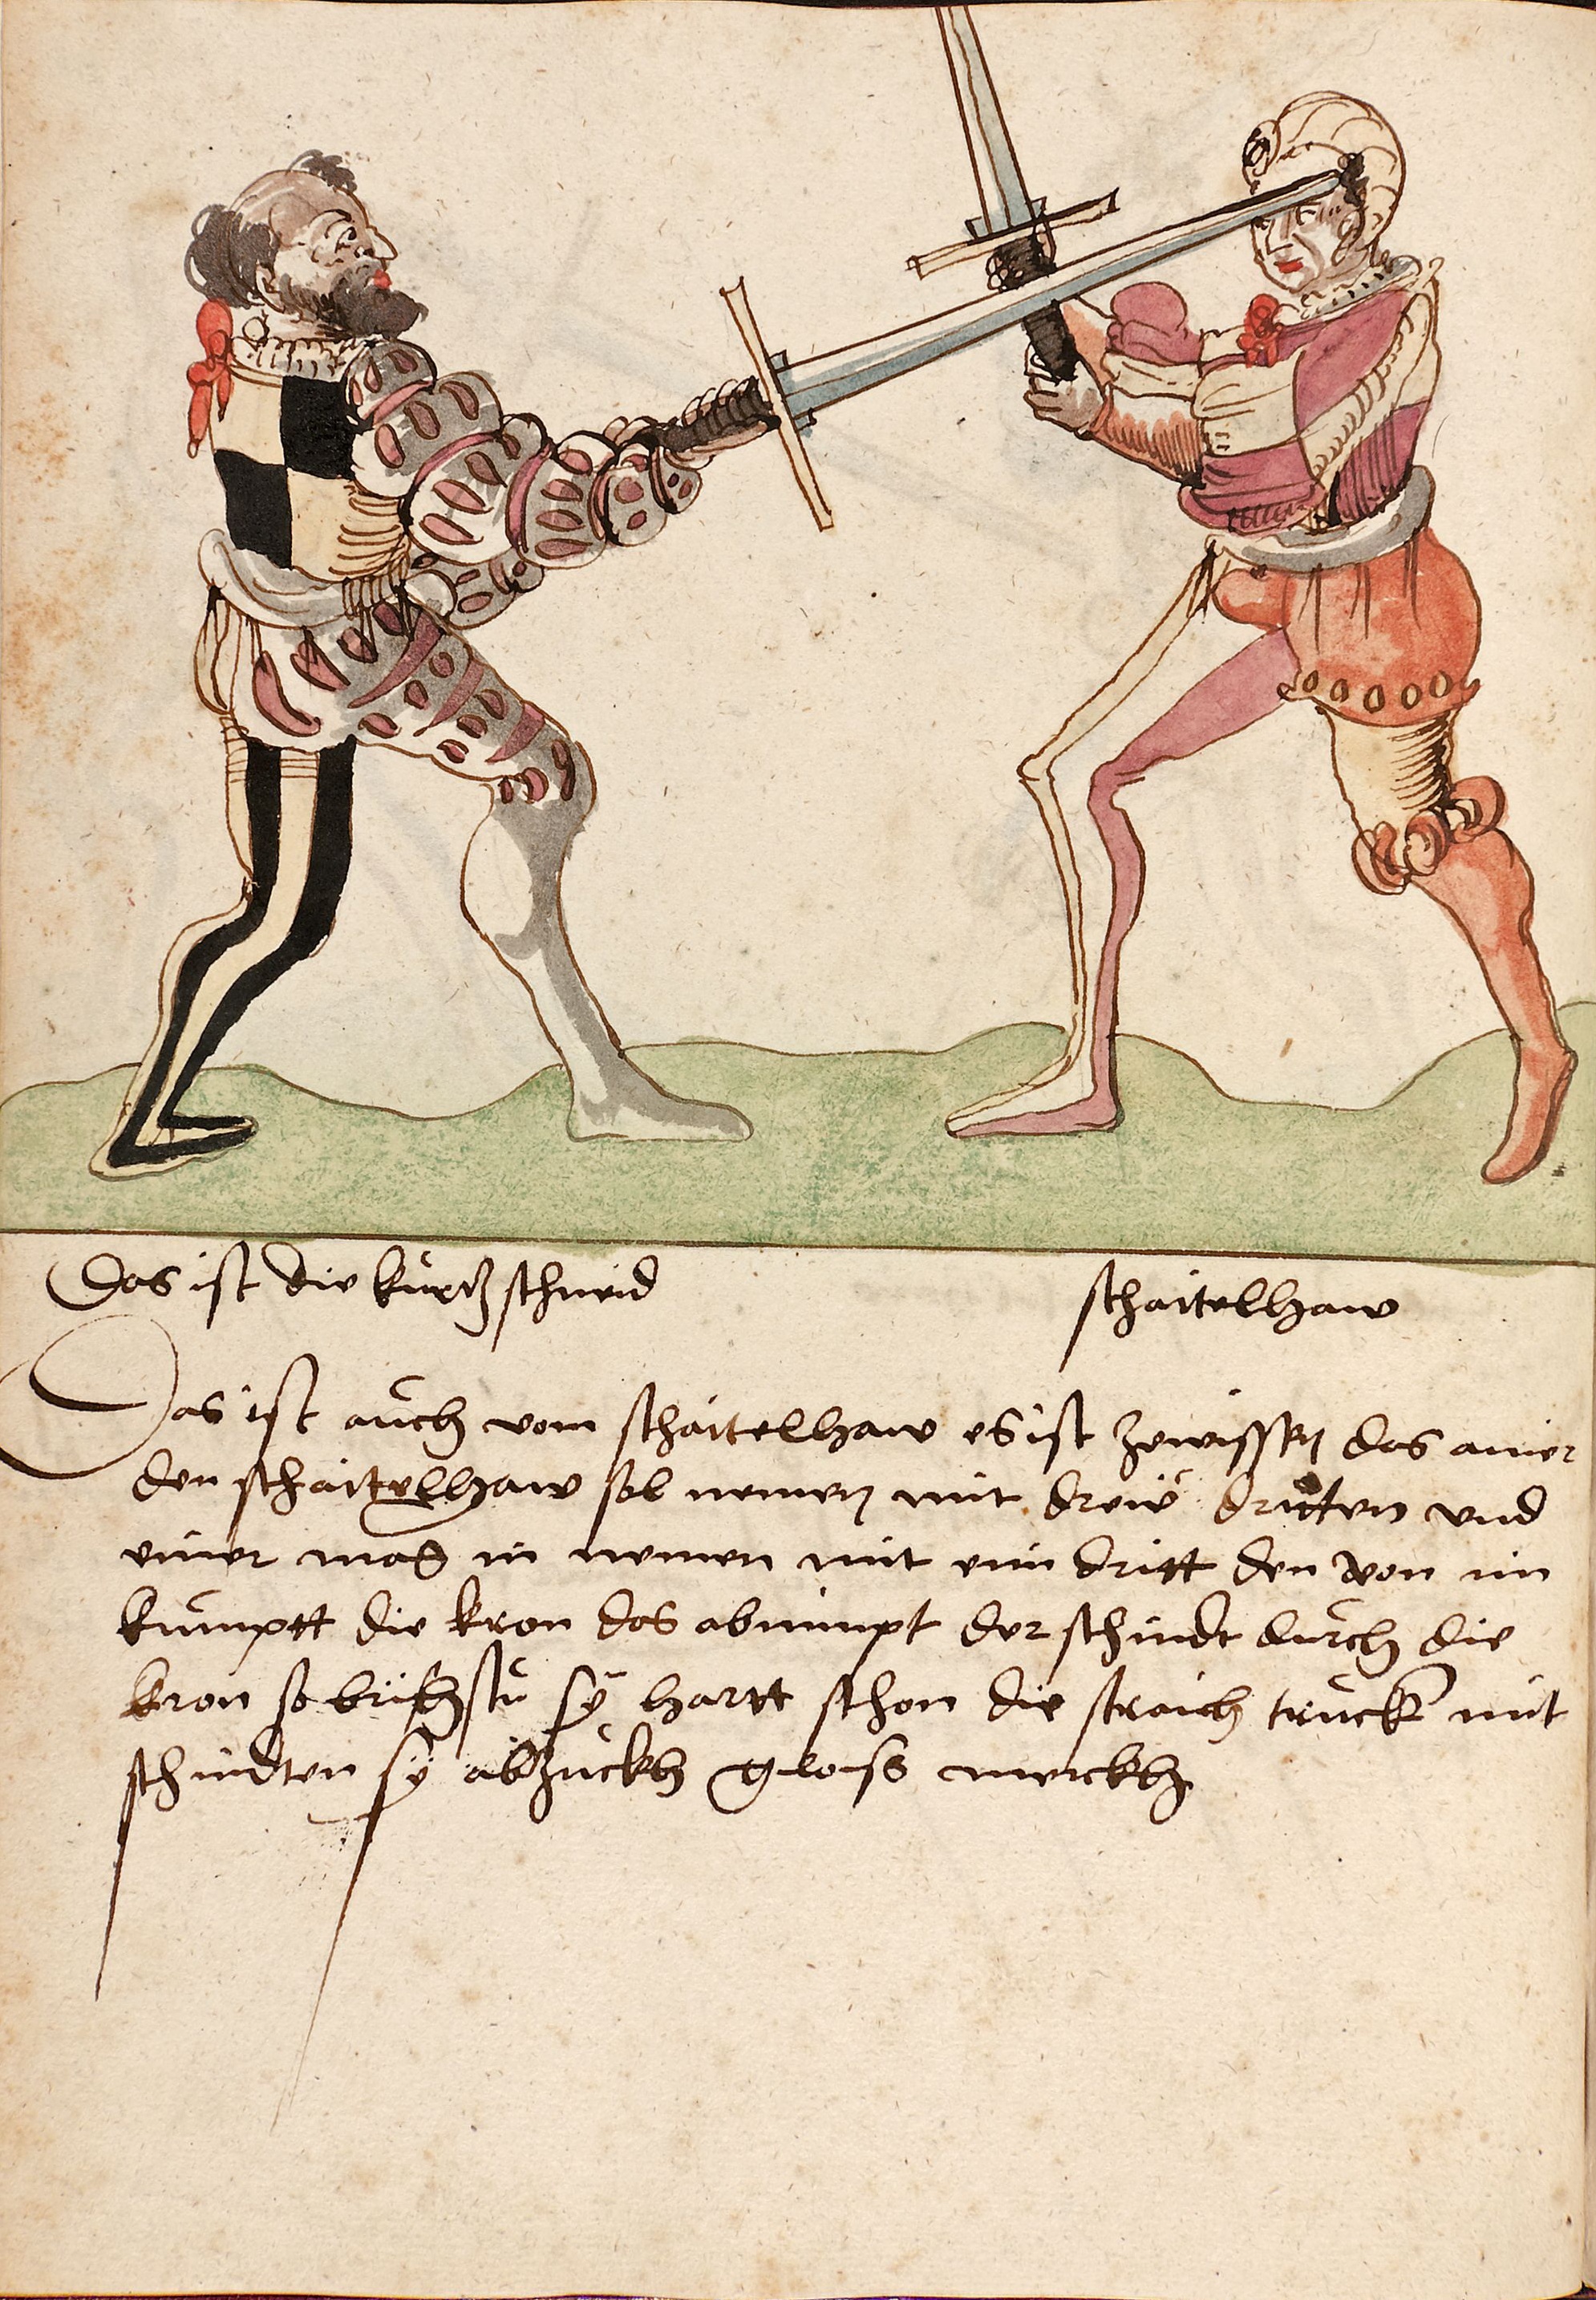 Das ist die kurtz schneid
schaitelhaw
Das ist auch vom schaitelhaw es ist zewissen das ainer
den schaitelhaw sol nemen mit dreiẅ dritten vnd
einer mag in nemen mit eim dritt den von im
kumptt die kron das abnimpt der schindt durch die
kron so brichstu sÿ hartt schon die straich truck mit
schindten sÿ abzuckh gloss merckh